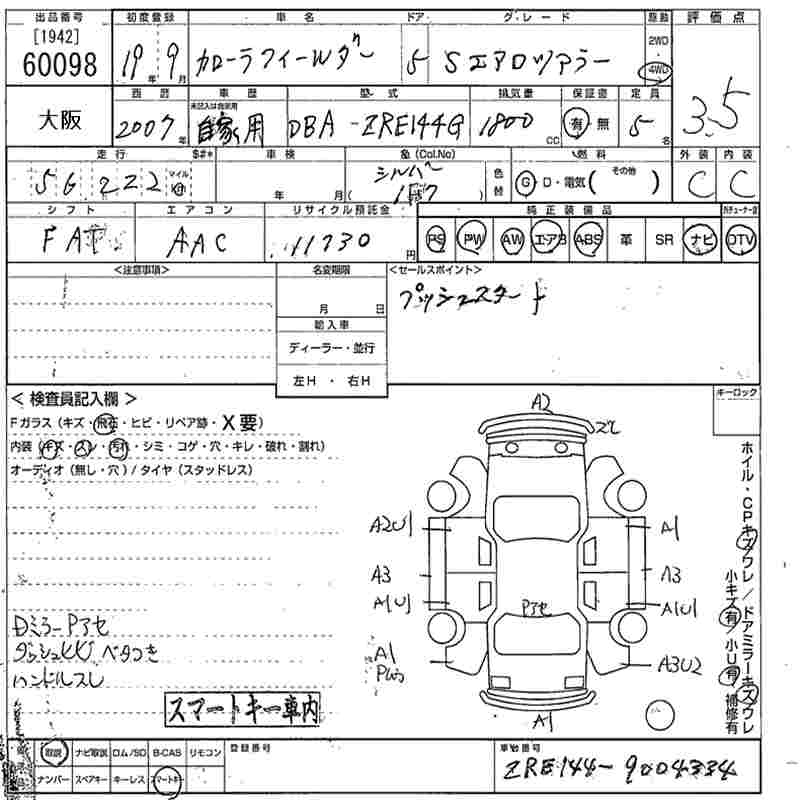 出品番号 初度登録 車名 ドア グレード 原動 評価点
[1942]
60098 19年 9月 カローラフィールダー 5 Sエアロツアラー 2WD・4WD 3.5
西暦 車歴 型式 排気量 保証書 定員
大阪 2007年 未記入は自家用 自家用 DBA-ZRE144G 1800cc 有 無 5名
走行 $#* 車検 色(Col.No) 燃料 外装 内装
56,222 マイル km 年 月 シルバー ( 1 7 ) 色替 G・D・電気 ( その他 ) C C
シフト エアコン リサイクル預託金 純正装備品
FAT AAC 11730円 PS PW AW エアB ABS 革 SR ナビ DTV
<注意事項> 名変期限 <セールスポイント>
月 日 プッシュスタート
輸入車
ディーラー・並行
左H ・ 右H
<検査員記入欄> キーロック
Fガラス(キズ・飛石・ヒビ・リペア跡・X要)
内装(キズ・スレ・汚れ・シミ・コゲ・穴・キレ・破れ・割れ)
オーディオ(無し・穴)/タイヤ(スタッドレス)
A2
ズレ
A2U1 A1
A3 A3
A1U1 A1U1
Pアセ
A1 A3U2
A1
ホイル・CPキズ/ワレ/ドアミラーキズ/ワレ
小キズ有/小U有/補修有
Dミラー Pアセ
ダッシュヒビ ベタつき
ハンドルスレ
スマートキー車内
取説 ナビ取説 ロム/SD B-CAS リモコン 登録番号 車台番号
ナンバー スペアキー キーレス スマートキー ZRE144-9004334